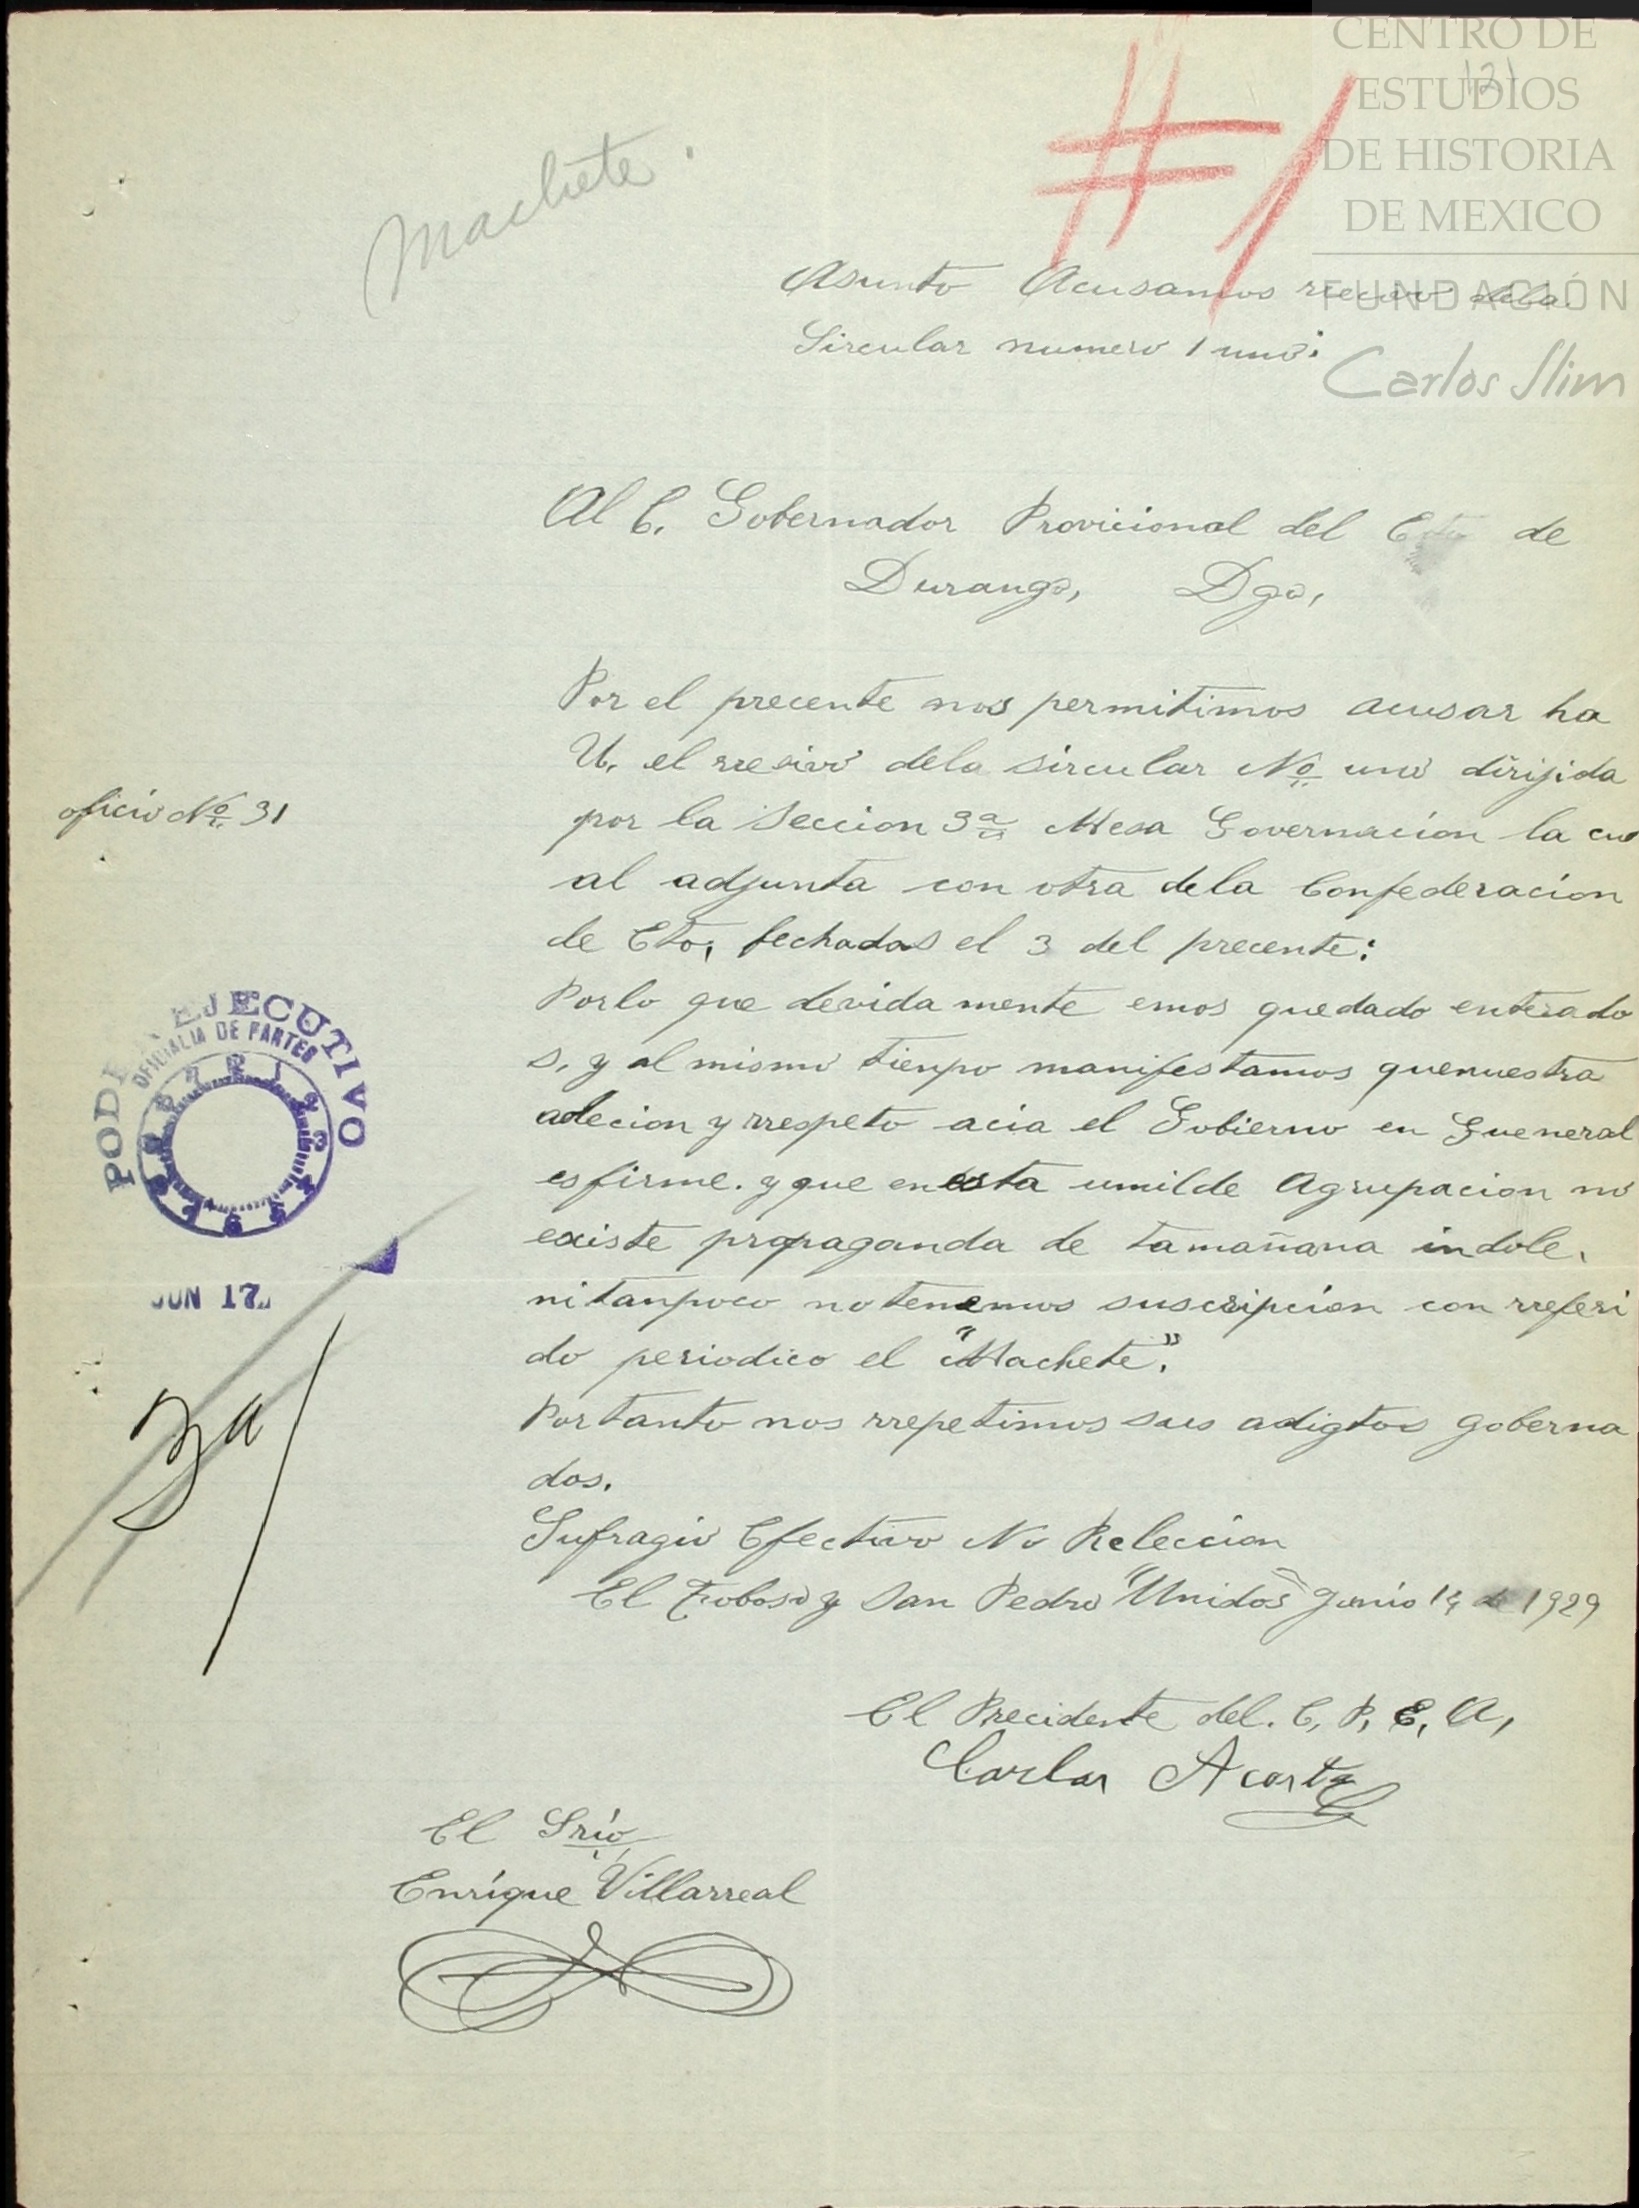 CENTRO DE
ESTUDIOS
DE HISTORIA
DE MEXICO
FUNDACIÓN
Carlos Slim
121
#1
Machete.
Asunto Acusamos dela
Sircular numero 1 uno:
Al C. Gobernador Provicional del Eto de
Durango, Dgo,
Por el precente nos permitimos acusar ha
U. el rresivo dela sircular No. uno dirijida
oficio No. 31
por la Seccion 3a Mesa Governacion la cu
al adjunta con otra dela Confederacion
de Eto, fechadas el 3 del precente:
Porlo que devida mente emos quedado enterado
s, y al mismo tienpo manifestamos quenuestra
adecion y rrespeto acia el Gobierno en Gueneral
es firme. y que en esta umilde Agrupacion no
existe propaganda de tamañana indole,
ni tanpoco no tenemos suscripcion con rreferi
do periodico el "Machete".
Por tanto nos rrepetimos sus adigtos goberna
dos.
Sufragio Efectivo No Releccion
El Toboso y San Pedro "Unidos" Junio 14 de 1929
PODER EJECUTIVO
OFICIALIA DE PARTES
JUN 17
3a
El Precidente del. C, P, E, A,
Carlos Acosta
El Srio,
Enrique Villarreal